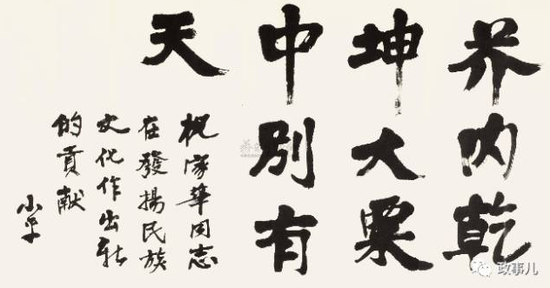 芥内乾
坤大粟
中別有
天
祝家華同志
在發揚民族
文化作出新
的貢献
小平
政事儿